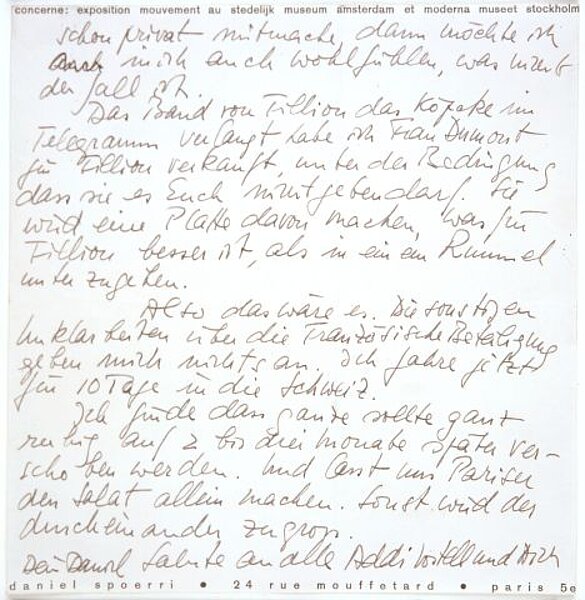 concerne: exposition mouvement au stedelijk museum amsterdam et moderna museet stockholm
schon privat mitmache, dann möchte ich
auch mich auch wohlfühlen, was nicht
der fall ist.
Das Band von Fillion das Köpcke im
Telegramm verlangt habe ich Frau Dumont
für Fillion verkauft, unter der Bedingung
dass sie es Euch nicht geben darf. Sie
wird eine Platte davon machen, was für
Fillion besser ist, als in einem Rummel
unterzugehen.
Also das wäre es. Die sonstigen
Unklarheiten über die Französische Beteiligung
gehen mich nichts an. Ich fahre jetzt
für 10 Tage in die Schweiz.
Ich finde dass ganze sollte ganz
ruhig auf 2 bis drei monate später ver-
schoben werden. Und lasst uns Pariser
den Salat allein machen. Sonst wird das
durcheinander zu gross.
Dein Daniel Salute an alle Addi Vostell und Dich
daniel spoerri • 24 rue mouffetard • paris 5e